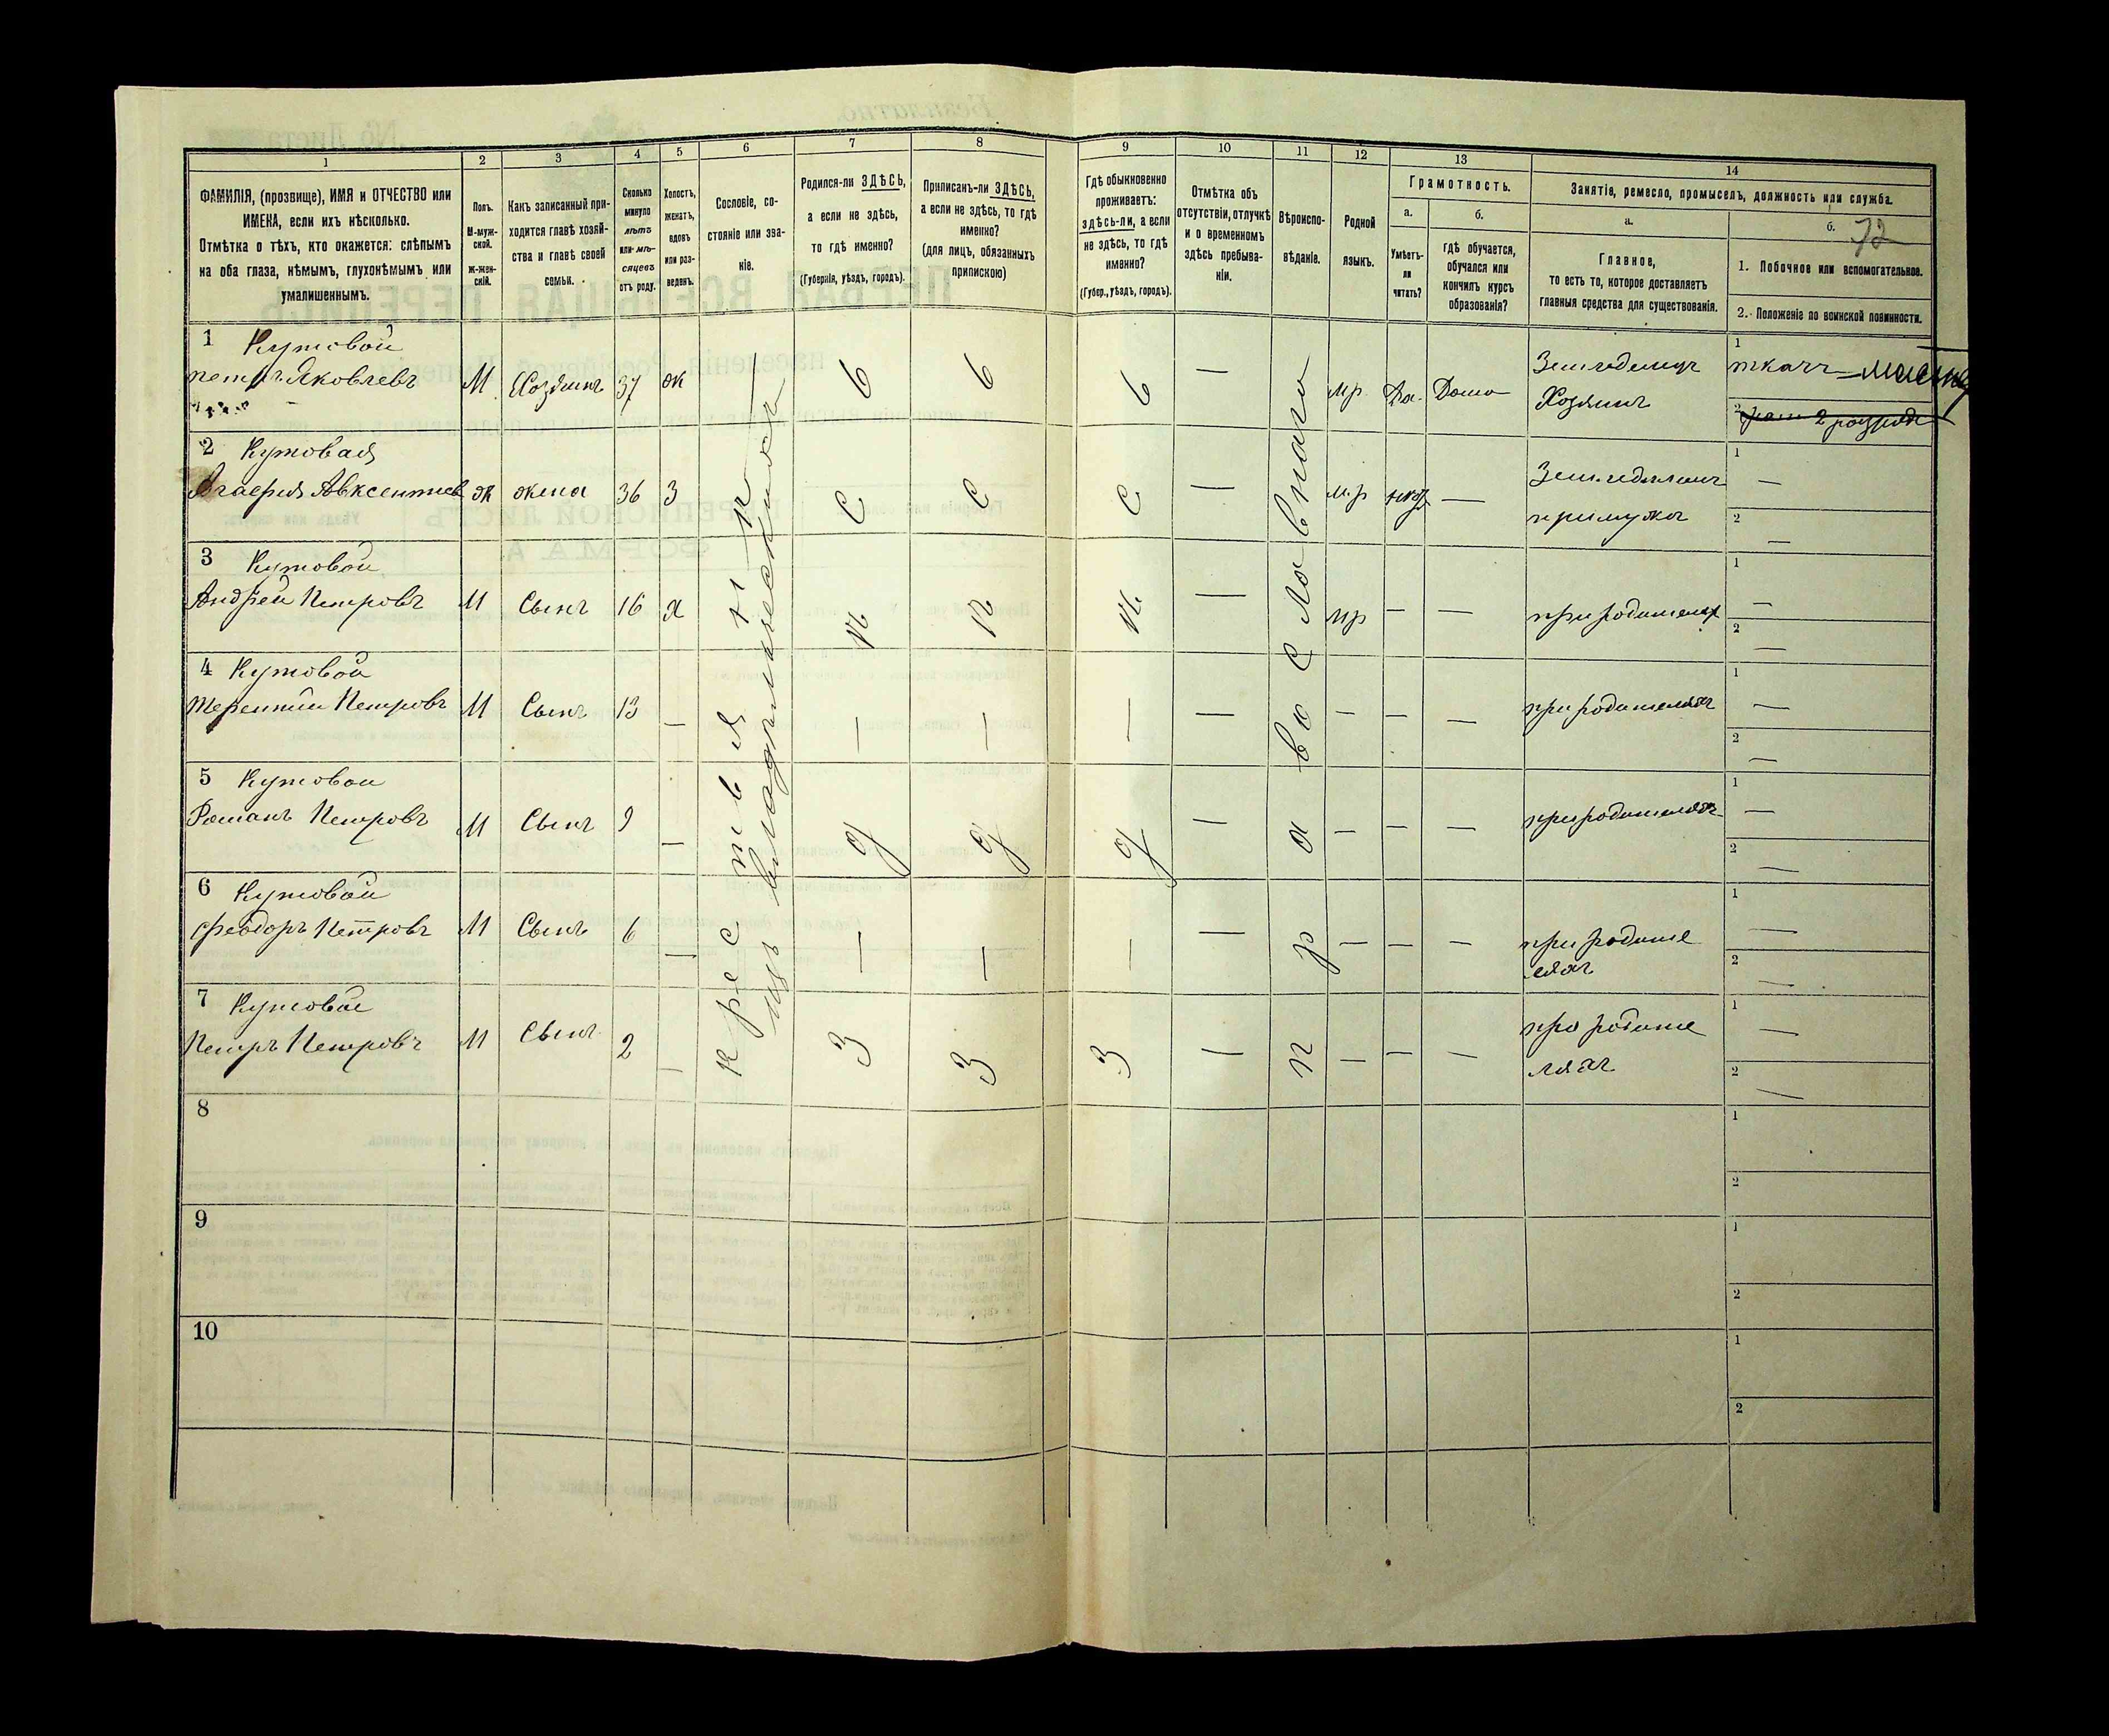 1 2 3 4 5 6 7 8 9 10 11 12 13 14
ФАМИЛІЯ, (прозвище), ИМЯ и ОТЧЕСТВО или
ИМЕНА, если ихъ нѣсколько.
Отмѣтка о тѣхъ, кто окажется: слѣпымъ
на оба глаза, нѣмымъ, глухонѣмымъ или
умалишеннымъ.
Полъ.
М-муж-
ской.
Ж-жен-
скій.
Какъ записанный при-
ходится главѣ хозяй-
ства и главѣ своей
семьи.
Сколько
минуло
лѣтъ
или мѣ-
сяцевъ
отъ роду.
Холостъ,
женатъ,
вдовъ
или раз-
веденъ.
Сословіе, со-
стояніе или зва-
ніе.
Родился-ли ЗДѢСЬ,
а если не здѣсь,
то гдѣ именно?
(Губернія, уѣздъ, городъ).
Приписанъ-ли ЗДѢСЬ,
а если не здѣсь, то гдѣ
именно?
(для лицъ, обязанныхъ
припискою)
Гдѣ обыкновенно
проживаетъ:
здѣсь-ли, а если
не здѣсь, то гдѣ
именно?
(Губер., уѣздъ, городъ).
Отмѣтка объ
отсутствіи, отлучкѣ
и о временномъ
здѣсь пребыва-
ніи.
Вѣроиспо-
вѣданіе.
Родной
языкъ.
Грамотность.
а.
Умѣетъ-
ли
читать?
б.
Гдѣ обучается,
обучался или
кончилъ курсъ
образованія?
Занятіе, ремесло, промыселъ, должность или служба.
а.
Главное,
то есть то, которое доставляетъ
главныя средства для существованія.
б. 72
1. Побочное или вспомогательное.
2. Положеніе по воинской повинности.
1 Кутовой
Петръ Яковлевъ М Хозяинъ 37 ж мр. Да. Дома Хозяинъ
1 ткачъ
2 2 разряда
2 Кутовая
Авксентиев ж жена 36 З м.р
1 —
2 —
3 Кутовой
Андрей Петровъ М Сынъ 16 х мр — —
1 —
2 —
4 Кутовой
Терентий Петровъ М Сынъ 13 — — — — — при родителяхъ
1 —
2 —
5 Кутовои
Романъ Петровъ М Сынъ 9 — — — — — при родителяхъ
1 —
2 —
6 Кутовой
Феодоръ Петровъ М Сынъ 6 — — — — — при родите
ляхъ
1 —
2 —
7 Кутовой
Петръ Петровъ М Сынъ 2 — — — — — при родите
ляхъ
1 —
2 —
крестьянинъ
изъ владѣльческихъ
здѣсь
здѣсь
здѣсь
православнаго
8
1
2
9
1
2
10
1
2